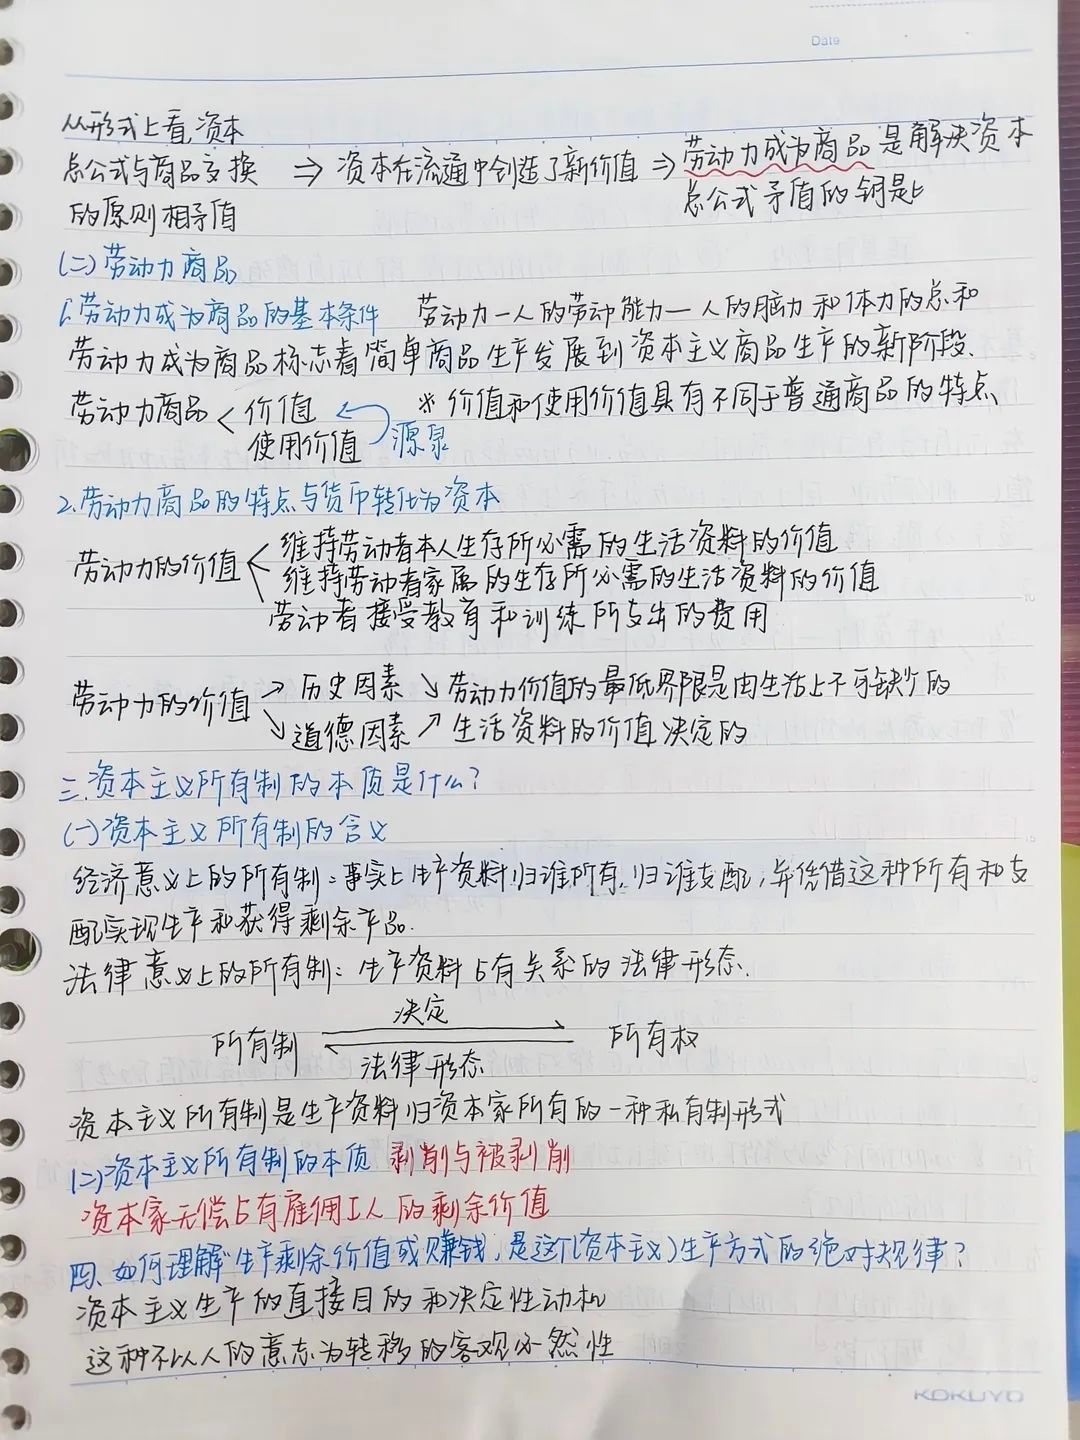 Date
从形式上看,资本
总公式与商品交换 ⇒ 资本在流通中创造了新价值 ⇒ 劳动力成为商品是解决资本
的原则相矛盾 总公式矛盾的钥匙
(二)劳动力商品
1.劳动力成为商品的基本条件 劳动力—人的劳动能力—人的脑力和体力的总和
劳动力成为商品标志着简单商品生产发展到资本主义商品生产的新阶段.
劳动力商品 < 价值 ← ※ 价值和使用价值具有不同于普通商品的特点
使用价值 源泉
2.劳动力商品的特点与货币转化为资本
维持劳动者本人生存所必需的生活资料的价值
劳动力的价值 < 维持劳动者家属的生存所必需的生活资料的价值
劳动者接受教育和训练所支出的费用
劳动力的价值 → 历史因素 ↘ 劳动力价值的最低界限是由生活上不可缺少的
↘ 道德因素 ↗ 生活资料的价值决定的
三.资本主义所有制的本质是什么?
(一)资本主义所有制的含义
经济意义上的所有制:事实上生产资料归谁所有,归谁支配,并凭借这种所有和支
配实现生产和获得剩余产品.
法律意义上的所有制:生产资料占有关系的法律形态.
决定
所有制 ⇌ 所有权
法律形态
资本主义所有制是生产资料归资本家所有的一种私有制形式
(二)资本主义所有制的本质 剥削与被剥削
资本家无偿占有雇佣工人的剩余价值
四、如何理解"生产剩余价值或赚钱,是这个(资本主义)生产方式的绝对规律?
资本主义生产的直接目的和决定性动机
这种不以人的意志为转移的客观必然性
KOKUYO